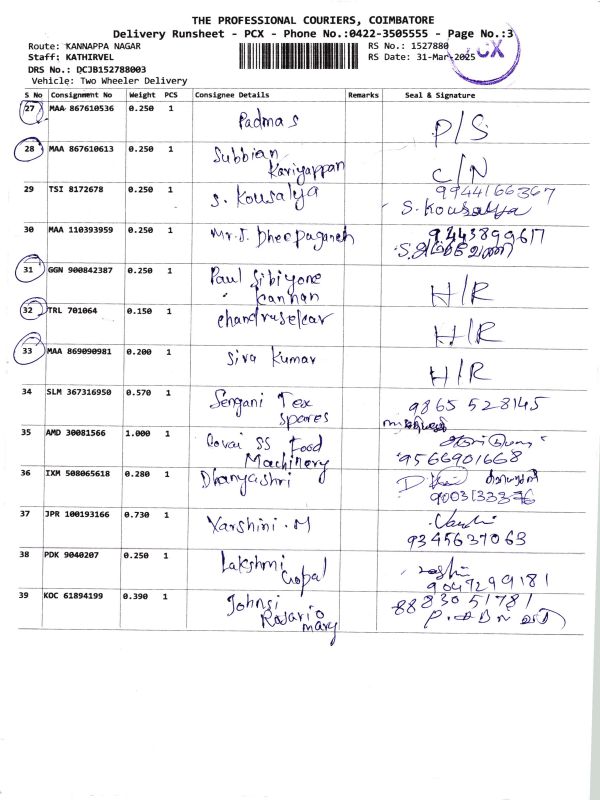 THE PROFESSIONAL COURIERS, COIMBATORE
Delivery Runsheet - PCX - Phone No.:0422-3505555 - Page No.:3
Route: KANNAPPA NAGAR RS No.: 1527880
Staff: KATHIRVEL RS Date: 31-Mar-2025
PCX
DRS No.: DCJB152788003
Vehicle: Two Wheeler Delivery
S No Consignment No Weight PCS Consignee Details Remarks Seal & Signature
27 MAA 867610536 0.250 1 Padma S P/S
28 MAA 867610613 0.250 1 Subbian Kariyappan C/N
29 TSI 8172678 0.250 1 S. Kousalya 9944166367
S. Kousalya
30 MAA 110393959 0.250 1 Mr.J. Dheepaganeh 9443899617
31 GGN 900842387 0.250 1 Paul Sibiyone Kannan H/R
32 TRL 701064 0.150 1 Chandrasekar H/R
33 MAA 869090981 0.200 1 Siva Kumar H/R
34 SLM 367316950 0.570 1 Sengani Tex Spares 9865528145
35 AMD 30081566 1.000 1 Covai SS Food Machinery 9566901668
36 IXM 508065618 0.280 1 Dhanyashri
37 JPR 100193166 0.730 1 Varshini.M 9345637063
38 PDK 9040207 0.250 1 Lakshmi Gopal 9047299181
39 KOC 61894199 0.390 1 Johnsi Rosario mary 8883051781